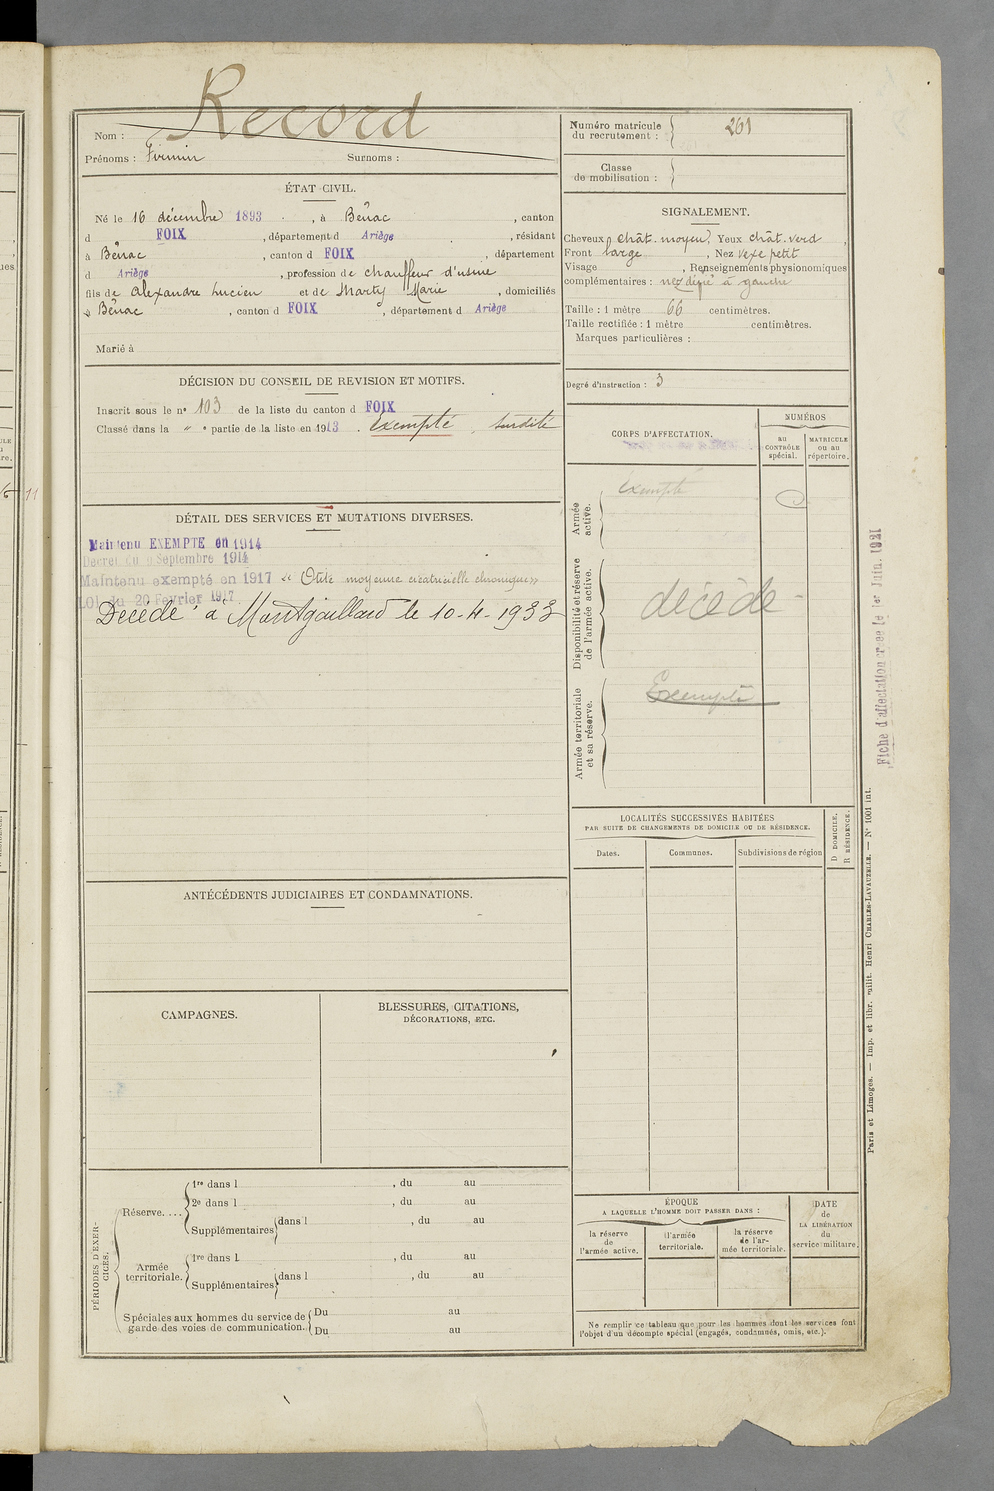 Nom : Record
Prénoms : Firmin Surnoms :
Numéro matricule du recrutement : 261
Classe de mobilisation :
ÉTAT CIVIL.
Né le 16 décembre 1893, à Bénac, canton
d FOIX, département d Ariège, résidant
à Bénac, canton d FOIX, département
d Ariège, profession de chauffeur d'usine
fils de Alexandre Lucien et de Marty Marie, domiciliés
à Bénac, canton d FOIX, département d Ariège
Marié à
SIGNALEMENT.
Cheveux chât. moyen Yeux chât. verd
Front large, Nez vexe petit
Visage , Renseignements physionomiques
complémentaires : nez dévié à gauche
Taille : 1 mètre 66 centimètres.
Taille rectifiée : 1 mètre centimètres.
Marques particulières :
Degré d'instruction : 3
DÉCISION DU CONSEIL DE REVISION ET MOTIFS.
Inscrit sous le nº 103 de la liste du canton d FOIX
Classé dans la " e partie de la liste en 1913. Exempté, surdité
CORPS D'AFFECTATION.
NUMÉROS
au CONTRÔLE spécial.
MATRICULE ou au répertoire.
Armée active.
Exempté
Disponibilité et réserve de l'armée active.
décédé
Armée territoriale et sa réserve.
Exempté
DÉTAIL DES SERVICES ET MUTATIONS DIVERSES.
Maintenu EXEMPTE en 1914
Décret du 9 Septembre 1914
Maintenu exempté en 1917 « Otite moyenne cicatricielle chronique »
LOI du 20 Février 1917
Décédé à Montgaillard le 10-4-1933
Fiche d'affectation créée le 1er Juin 1921
LOCALITÉS SUCCESSIVES HABITÉES
PAR SUITE DE CHANGEMENTS DE DOMICILE OU DE RÉSIDENCE.
Dates. Communes. Subdivisions de région
D DOMICILE.
R RÉSIDENCE.
ANTÉCÉDENTS JUDICIAIRES ET CONDAMNATIONS.
CAMPAGNES.
BLESSURES, CITATIONS,
DÉCORATIONS, ETC.
PÉRIODES D'EXERCICES.
Réserve....
1re dans l , du au
2e dans l , du au
Supplémentaires dans l , du au
Armée territoriale.
1re dans l , du au
Supplémentaires dans l , du au
Spéciales aux hommes du service de
garde des voies de communication.
Du au
Du au
ÉPOQUE
A LAQUELLE L'HOMME DOIT PASSER DANS :
la réserve de l'armée active.
l'armée territoriale.
la réserve de l'armée territoriale.
DATE de LA LIBÉRATION du service militaire.
Ne remplir ce tableau que pour les hommes dont les services font
l'objet d'un décompte spécial (engagés, condamnés, omis, etc.).
Paris et Limoges. — Imp. et libr. milit. Henri CHARLES-LAVAUZELLE. — N° 1001 int.